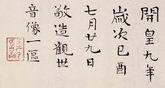 開皇九年
歲次己酉
七月廿九日
敬造觀世
音像一區